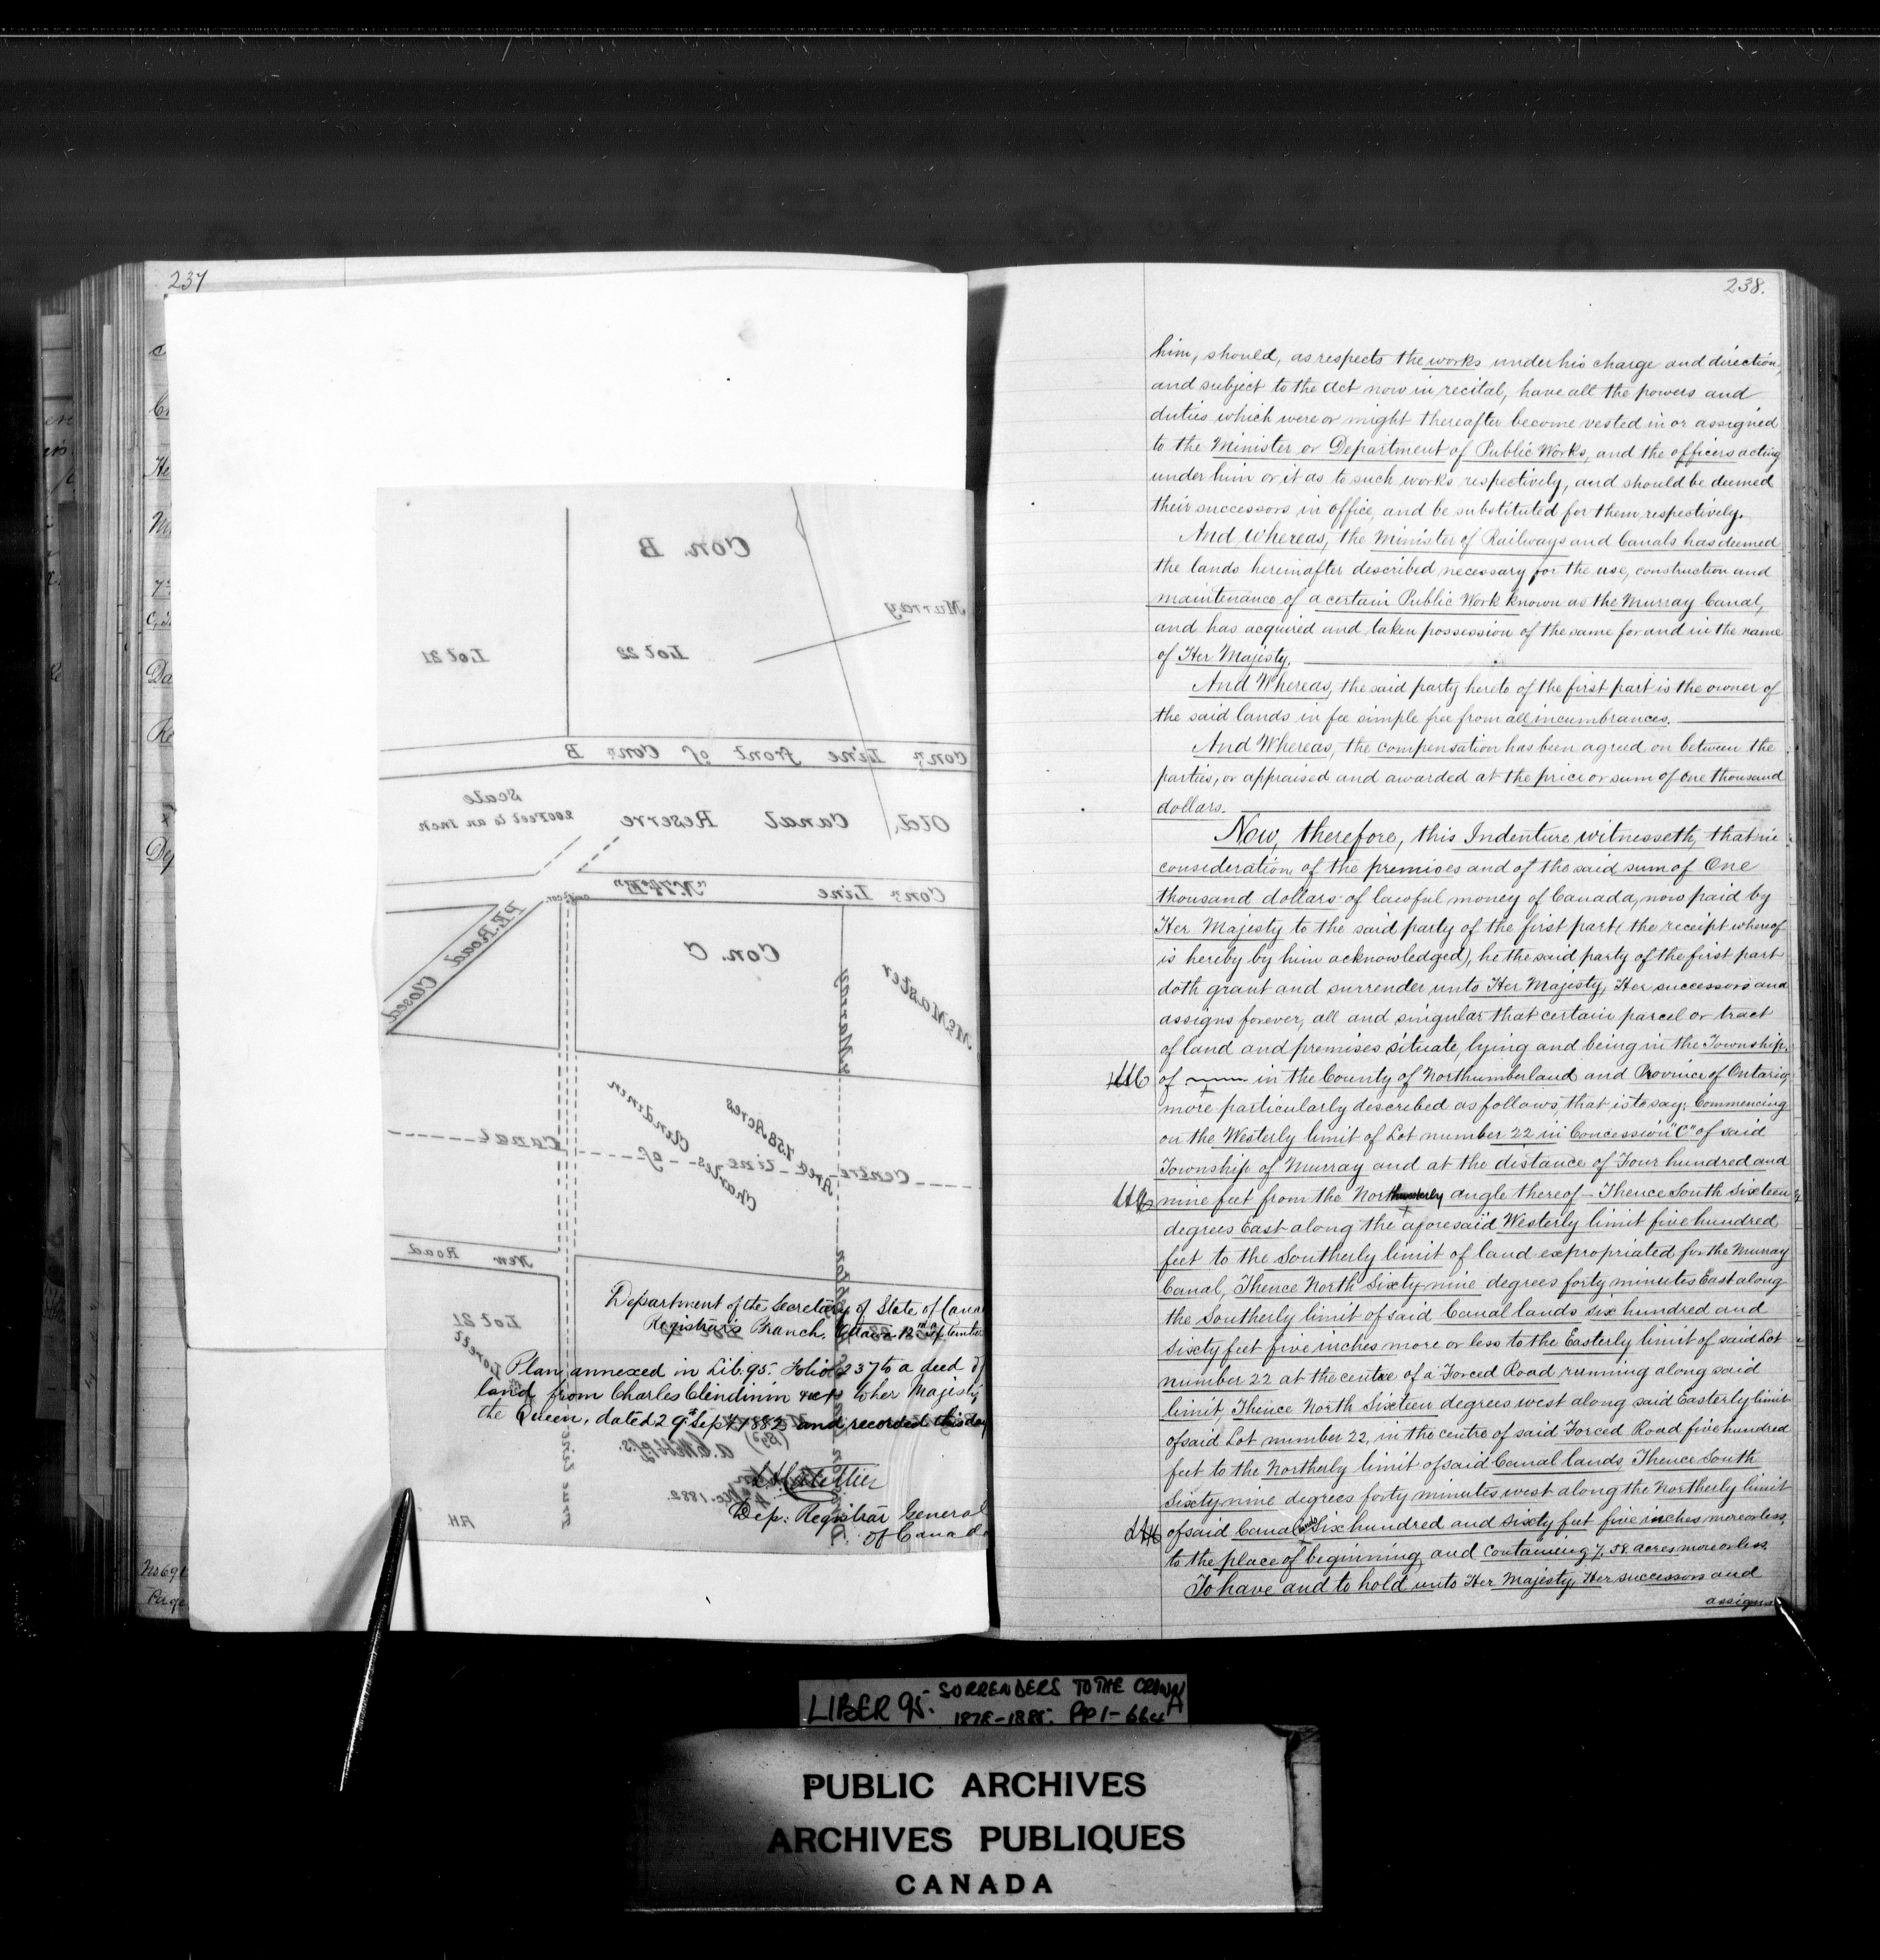 237
Con. B
Murray
Lot 22
Lot 21
Conn. Line front of Conn. B
Scale
200 Feet to an Inch
Old Canal Reserve
Conn. Line
P.E. Road Closed
Con. C
McMaster
Murray
Charles Clindinin
Area 7.58 Acres
Centre Line of Canal
New Road
Lot 21
Department of the Secretary of State of Cana
Registrar's Branch. Ottawa 12th September
Plan annexed in Lib. 95. Folio 237 to a deed of
land from Charles Clindinin to her Majesty
the Queen, dated 29th Sept 1882 and recorded this day
Dep: Registrar General
of Canada
No 69
Page
238.
him, should, as respects the works under his charge and direction,
and subject to the Act now in recital, have all the powers and
duties which were or might thereafter become vested in or assigned
to the Minister or Department of Public Works, and the officers acting
under him or it as to such works respectively, and should be deemed
their successors in office, and be substituted for them, respectively.
And Whereas, the Minister of Railways and Canals has deemed
the lands hereinafter described necessary for the use, construction and
maintenance of a certain Public Work known as the Murray Canal,
and has acquired and taken possession of the same for and in the name
of Her Majesty.
And Whereas, the said party hereto of the first part is the owner of
the said lands in fee simple free from all incumbrances.
And Whereas, the compensation has been agreed on between the
parties, or appraised and awarded at the price or sum of One thousand
dollars.
Now, therefore, this Indenture witnesseth, that in
consideration of the premises and of the said sum of One
thousand dollars of lawful money of Canada, now paid by
Her Majesty to the said party of the first part (the receipt whereof
is hereby by him acknowledged), he the said party of the first part
doth grant and surrender unto Her Majesty, Her successors and
assigns forever, all and singular that certain parcel or tract
of land and premises situate, lying and being in the Township
of in the County of Northumberland and Province of Ontario,
more particularly described as follows, that is to say; Commencing
on the Westerly limit of Lot number 22 in Concession "C" of said
Township of Murray and at the distance of Four hundred and
nine feet from the Northwesterly angle thereof - Thence South Sixteen
degrees East along the aforesaid Westerly limit five hundred
feet to the Southerly limit of land expropriated for the Murray
Canal, Thence North Sixty-nine degrees forty minutes East along
the Southerly limit of said Canal lands six hundred and
sixty feet five inches more or less to the Easterly limit of said Lot
number 22 at the centre of a Forced Road running along said
limit, Thence North Sixteen degrees west along said Easterly limit
of said Lot number 22, in the centre of said Forced Road five hundred
feet to the Northerly limit of said Canal lands, Thence South
Sixty nine degrees forty minutes west along the Northerly limit
of said Canal lands Six hundred and sixty feet five inches more or less,
to the place of beginning, and containing 7.58 acres more or less.
To have and to hold unto Her Majesty, Her successors and
assigns
LIBER 95. SURRENDERS TO THE CROWN
1878-1885. PP 1-664
PUBLIC ARCHIVES
ARCHIVES PUBLIQUES
CANADA